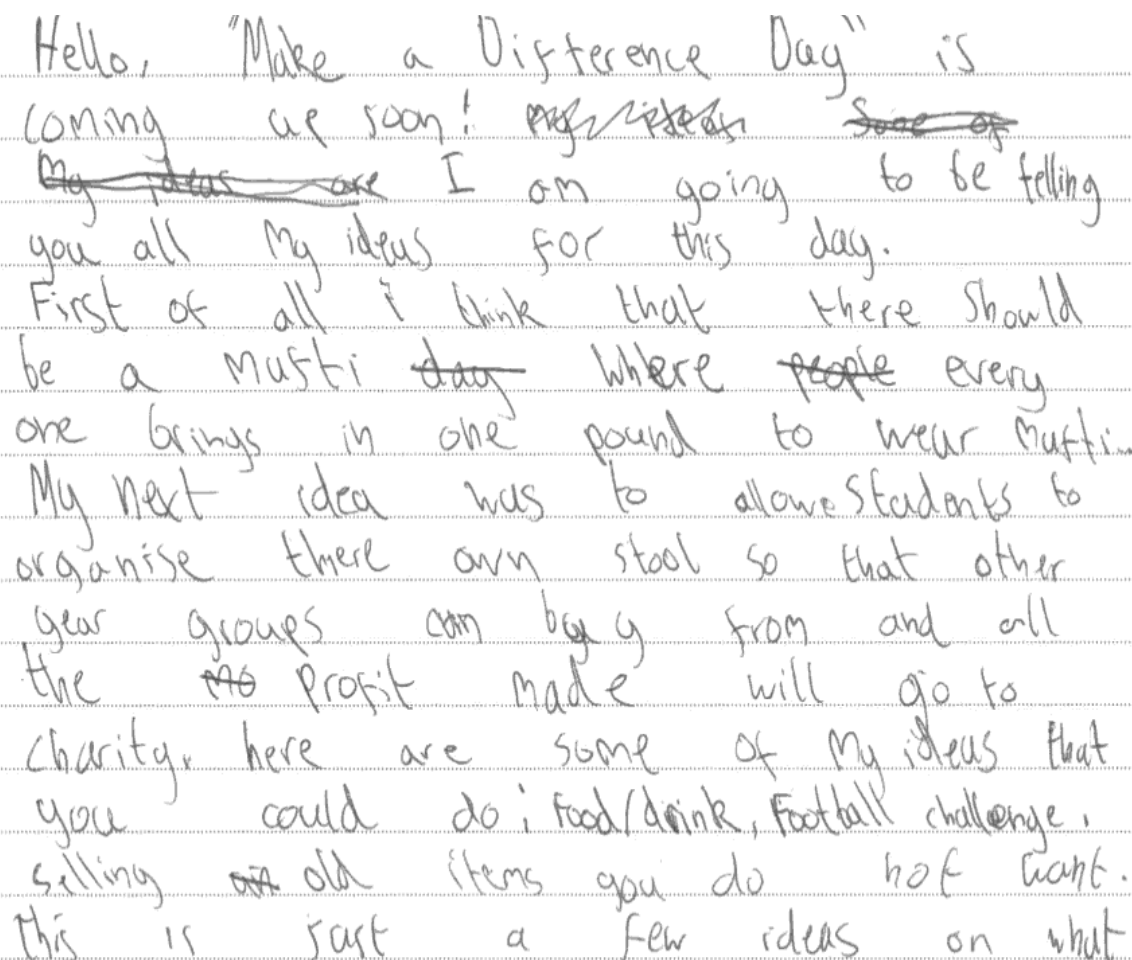 Hello, "Make a Difference Day" is
coming up soon!
I am going to be telling
you all my ideas for this day.
First of all i think that there should
be a mufti where every
one brings in one pound to wear mufti...
My next idea was to allowe students to
organise there own stool so that other
year groups can buy from and all
the profit made will go to
charity. here are some of my ideas that
you could do; Food/drink, Football challenge,
selling old items you do not want.
this is just a few ideas on what